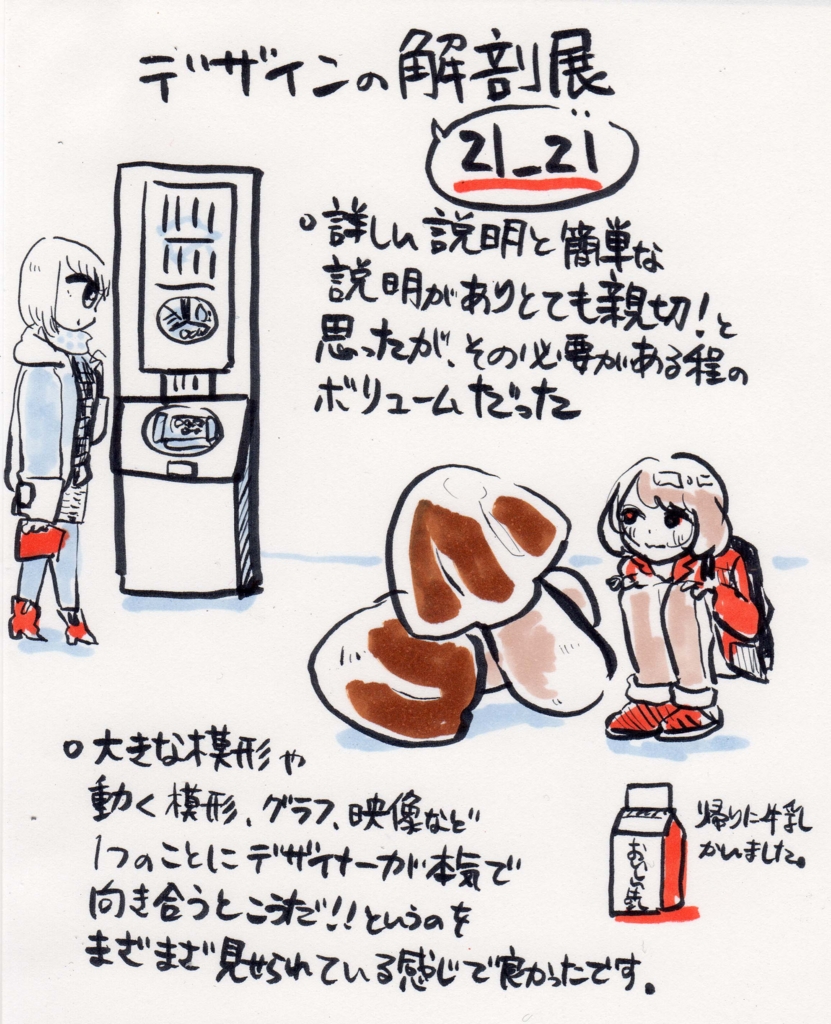 デザインの解剖展
21_21
○詳しい説明と簡単な
説明がありとても親切!と
思ったが、その必要がある程の
ボリュームだった
○大きな模形や
動く模形、グラフ、映像など
1つのことにデザイナーが本気で
向き合うとこうだ!!というのを
まざまざ見せられている感じで良かったです。
おいしい牛乳
帰りに牛乳
かいました。